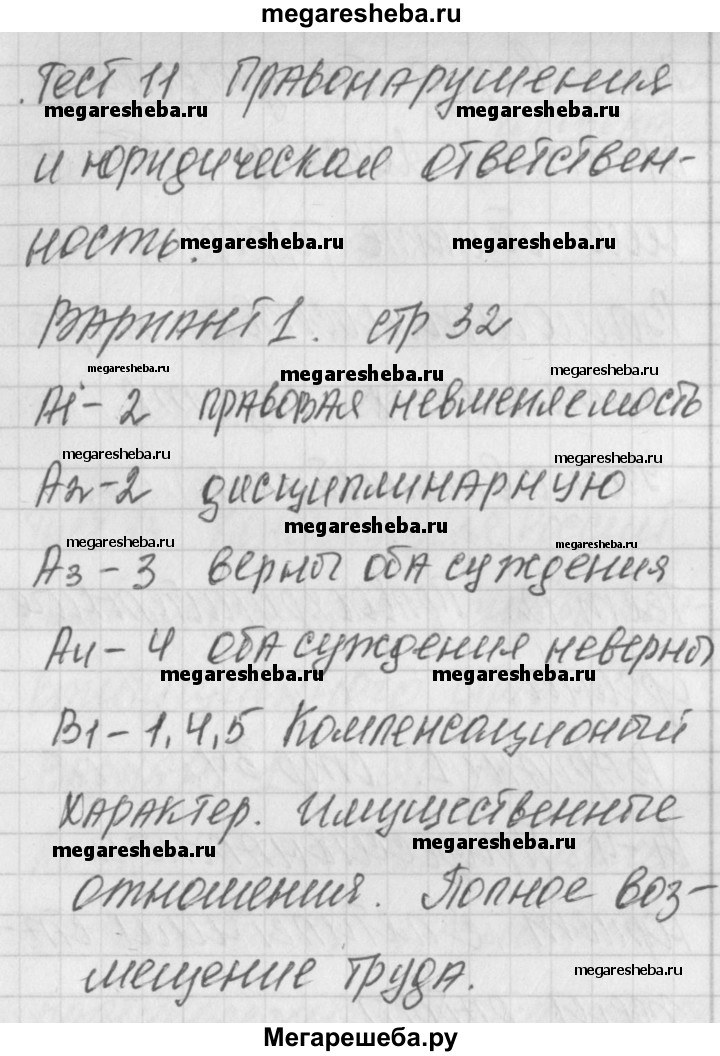 megaresheba.ru
Тест 11 Правонарушения
megaresheba.ru megaresheba.ru
и юридическая ответствен-
ность. megaresheba.ru megaresheba.ru
Вариант 1. стр 32
megaresheba.ru megaresheba.ru megaresheba.ru
А1 - 2 правовая невменяемость
megaresheba.ru megaresheba.ru
А2 - 2 дисциплинарную
megaresheba.ru megaresheba.ru megaresheba.ru
А3 - 3 верны оба суждения
А4 - 4 оба суждения неверны
megaresheba.ru megaresheba.ru
В1 - 1, 4, 5 Компенсационый
характер. Имущественные
megaresheba.ru megaresheba.ru
отношения. Полное воз-
мещение труда. megaresheba.ru
Мегарешеба.ру